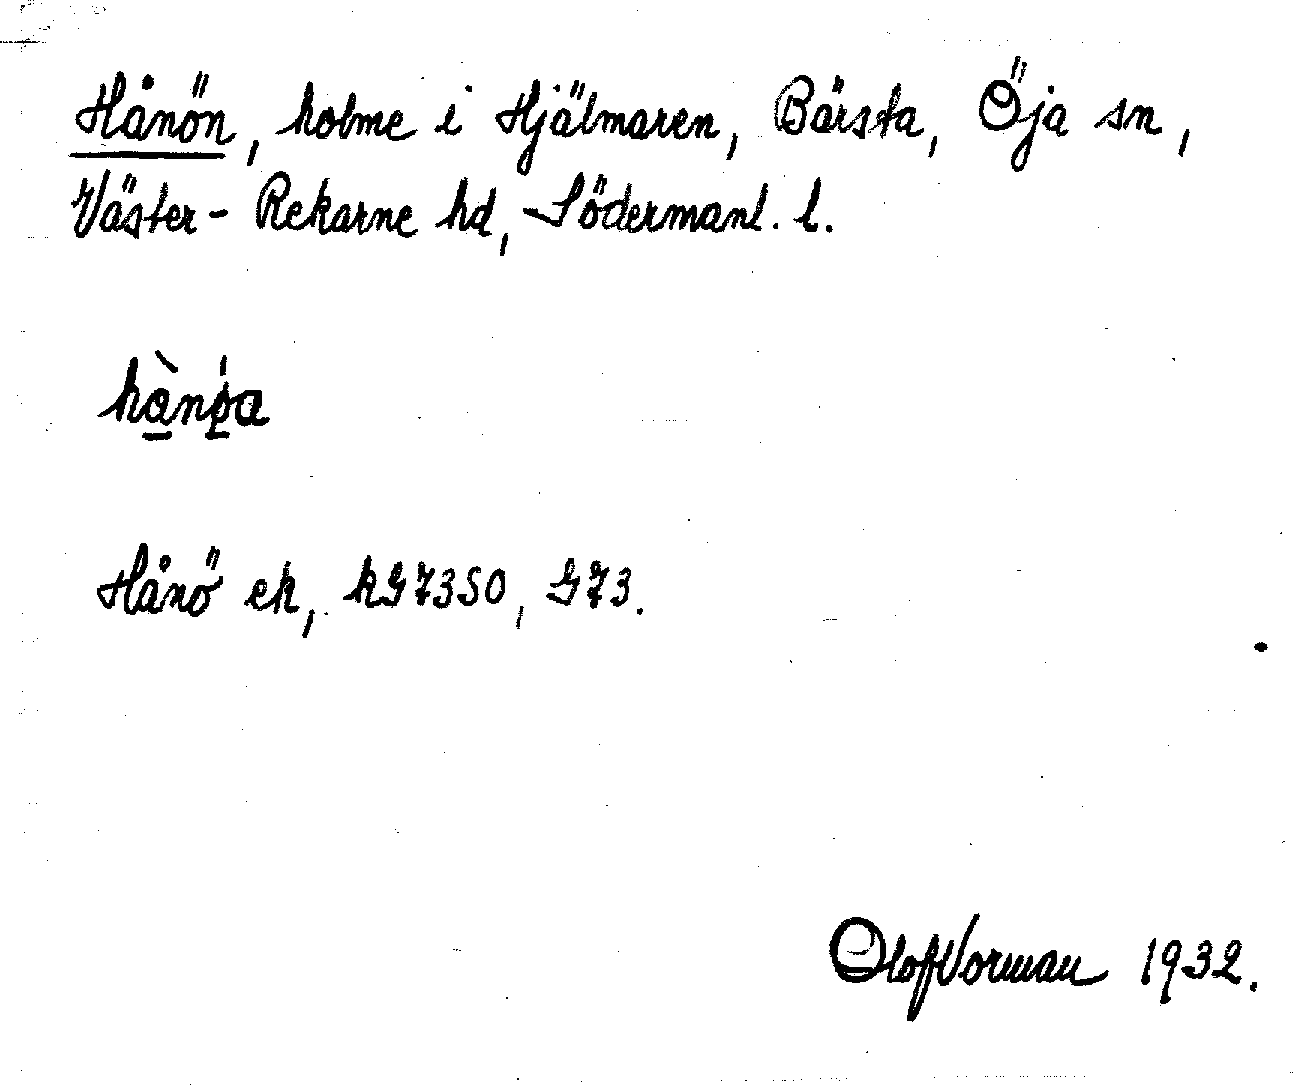 Hånön, holme i Hjälmaren, Bårsta, Öja sn,
Väster-Rekarne hd, Södermanl. l.
hànøa
Hånö ek, kG7350, G73.
Olof Vorman 1932.